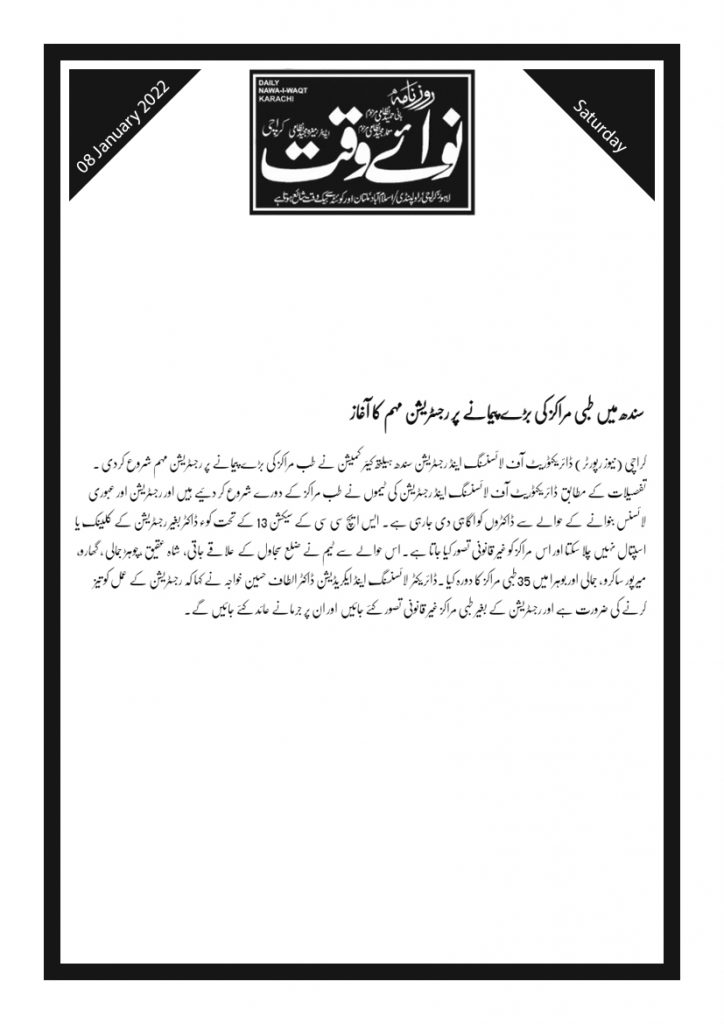 08 January 2022
DAILY
NAWA-I-WAQT
KARACHI
روزنامہ
نوائے وقت
کراچی
Saturday
سندھ میں طبی مراکز کی بڑے پیمانے پر رجسٹریشن مہم کا آغاز
کراچی (نیوز رپورٹر) ڈائریکٹوریٹ آف لائسنسنگ اینڈ رجسٹریشن سندھ ہیلتھ کیئر کمیشن نے طب مراکز کی بڑے پیمانے پر رجسٹریشن مہم شروع کردی ۔
تفصیلات کے مطابق ڈائریکٹوریٹ آف لائسنسنگ اینڈ رجسٹریشن کی ٹیموں نے طب مراکز کے دورے شروع کر دیئے ہیں اور رجسٹریشن اور عبوری
لائسنس بنوانے کے حوالے سے ڈاکٹروں کو اگاہی دی جارہی ہے۔ ایس ایچ سی سی کے سیکشن 13 کے تحت کوء ڈاکٹر بغیر رجسٹریشن کے کلینک یا
اسپتال نہیں چلا سکتا اور اس مراکز کو غیر قانونی تصور کیا جاتا ہے۔ اس حوالے سے ٹیم نے ضلع سجاول کے علاقے جاتی، شاہ عقیق، چوہڑ جمالی، گھارو،
میرپور ساکرو، جمالی اور بوہرا میں 35 طبی مراکز کا دورہ کیا ۔ڈائریکٹر لائسنسنگ اینڈ ایکریڈیشن ڈاکٹر الطاف حسین خواجہ نے کہا کہ رجسٹریشن کے عمل کو تیز
کرنے کی ضرورت ہے اور رجسٹریشن کے بغیر طبی مراکز غیر قانونی تصور کئے جائیں اور ان پر جرمانے عائد کئے جائیں گے۔